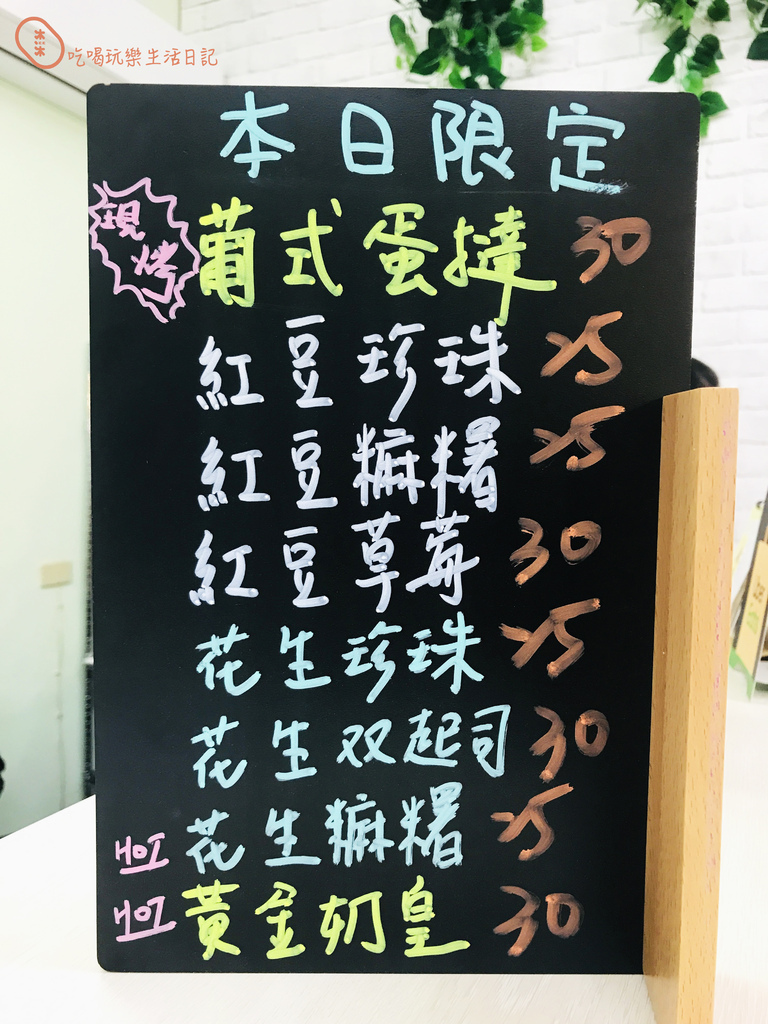 吃喝玩樂生活日記
本日限定
現烤 葡式蛋撻 30
紅豆珍珠 25
紅豆麻糬 25
紅豆草莓 30
花生珍珠 25
花生双起司 30
HOT 花生麻糬 25
HOT 黃金奶皇 30